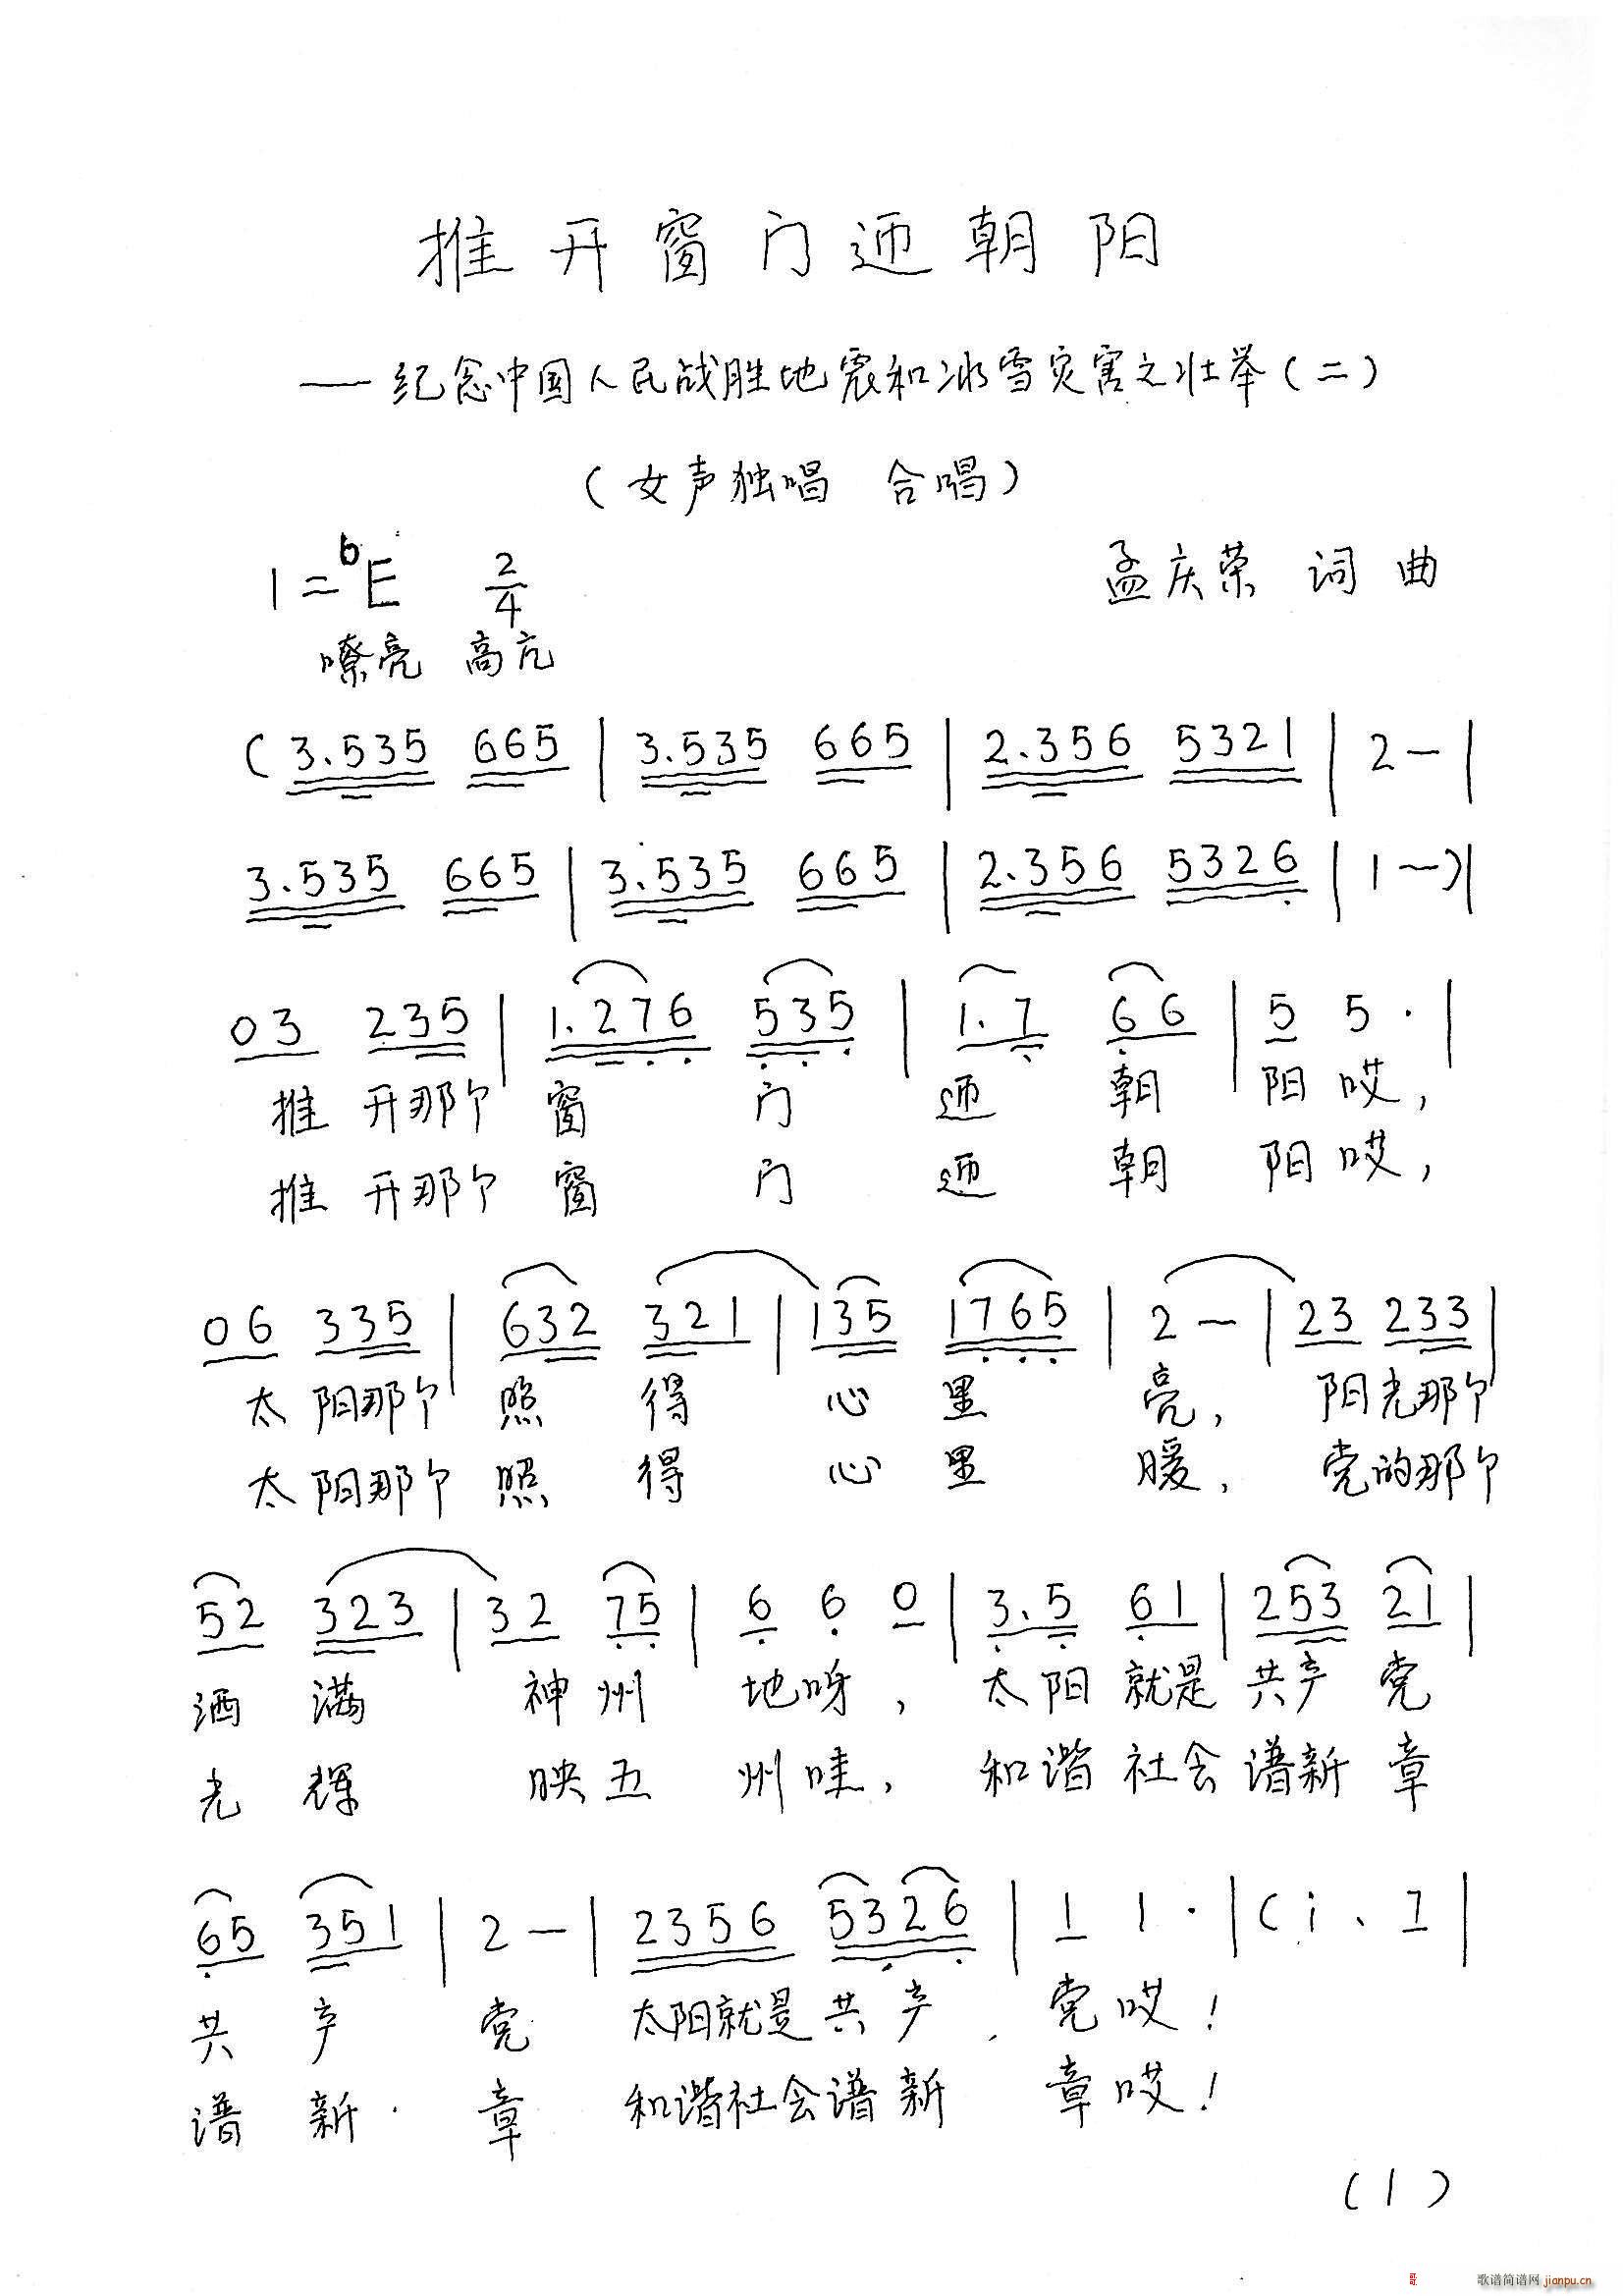 推开窗门迊朝阳
——纪念中国人民战胜地震和冰雪灾害之壮举(二)
(女声独唱 合唱)
1=bE 2/4 孟庆荣 词曲
嘹亮 高亢
(3.535 665 | 3.535 665 | 2.356 5321 | 2 - |
3.535 665 | 3.535 665 | 2.356 5326 | 1 -)|
03 235 | 1.276 535 | 1.7 66 | 5 5· |
推 开那个 窗 门 迊 朝 阳 哎,
推 开那个 窗 门 迊 朝 阳 哎,
06 335 | 632 321 | 135 1765 | 2 - | 23 233 |
太 阳那个 照 得 心 里 亮, 阳光那个
太 阳那个 照 得 心 里 暖, 党的那个
52 323 | 32 75 | 6 6 0 | 3.5 61 | 253 21 |
洒 满 神 州 地呀, 太 阳 就是 共产 党
光 辉 映 五 州 哇, 和 谐 社会 谱新 章
65 351 | 2 - | 2356 5326 | 1 1· | (i、1 |
共 产 党 太阳就是 共 产 党 哎!
谱 新 章 和谐社会 谱 新 章 哎!
(1)
歌谱简谱网 jianpu.cn